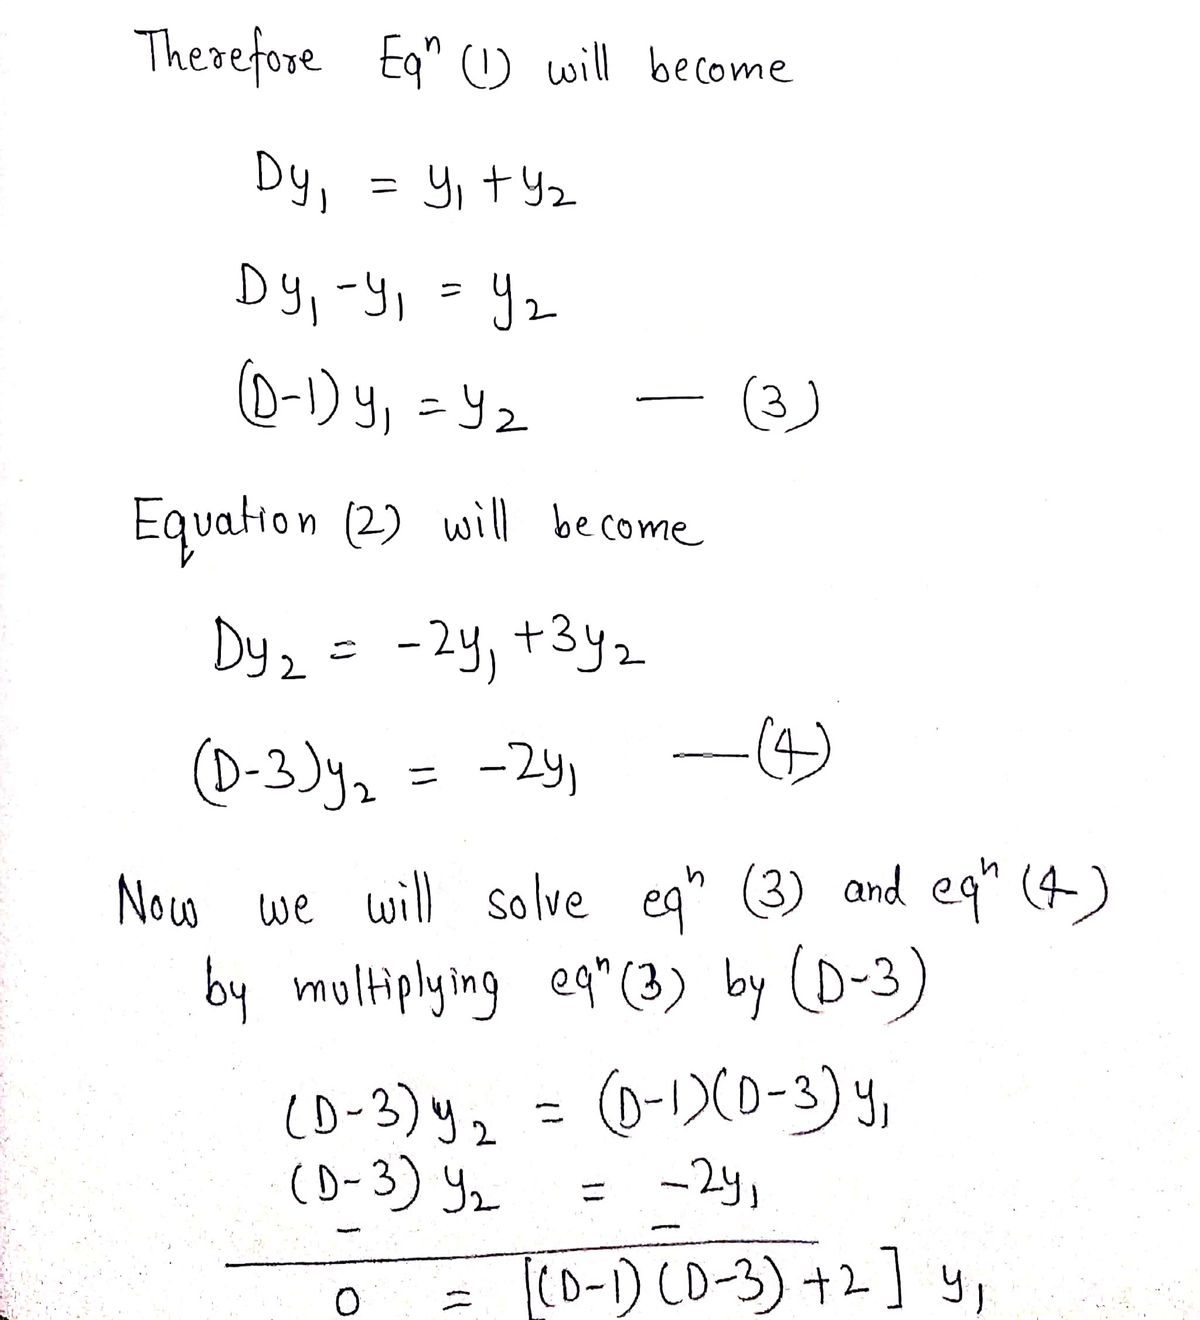 Therefore Eqⁿ (1) will become
Dy₁ = y₁ + y₂
Dy₁ - y₁ = y₂
(D-1) y₁ = y₂ — (3)
Equation (2) will become
Dy₂ = -2y₁ + 3y₂
(D-3)y₂ = -2y₁ — (4)
Now we will solve eqⁿ (3) and eqⁿ (4)
by multiplying eqⁿ (3) by (D-3)
(D-3) y₂ = (D-1)(D-3) y₁
(D-3) y₂ = -2y₁
- -
0 = [(D-1) (D-3) + 2] y₁